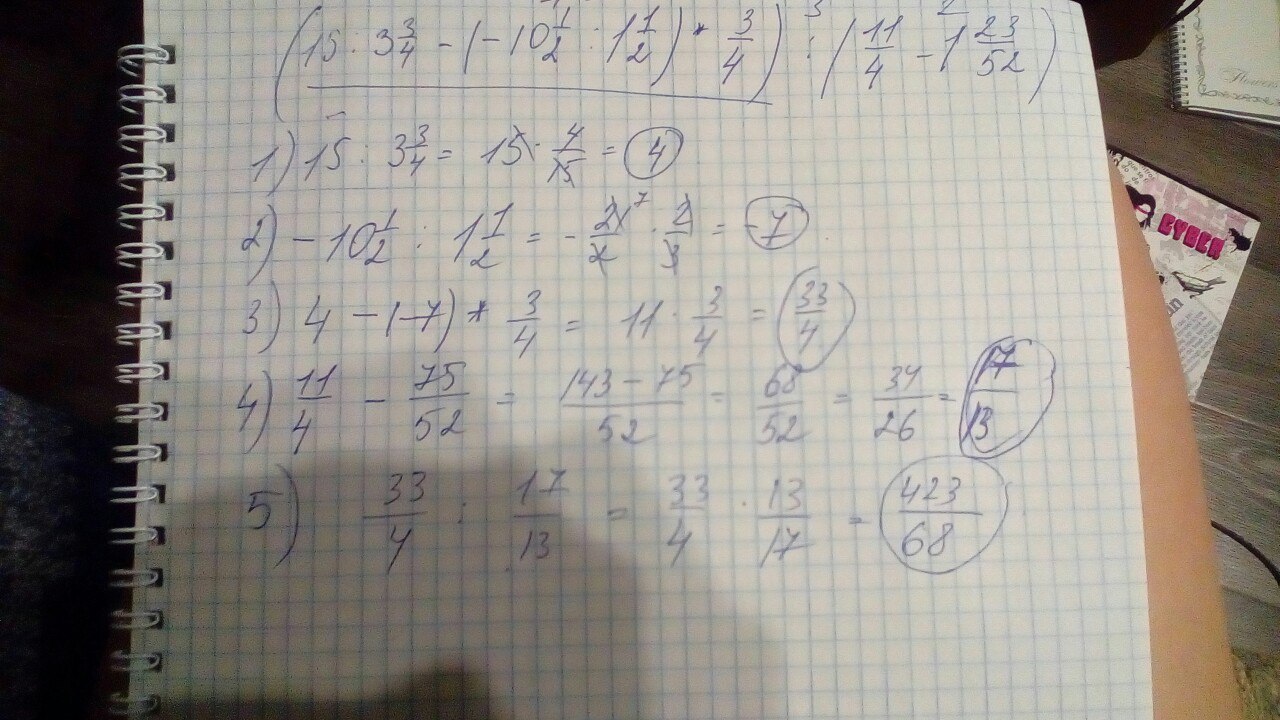 (15 : 3 3/4 - (-10 1/2 : 1 1/2) * 3/4) : (11/4 - 1 23/52)
1) 15 : 3 3/4 = 15 · 4/15 = 4
2) - 10 1/2 : 1 1/2 = - 21/2 · 2/3 = -7
3) 4 - (-7) * 3/4 = 11 · 3/4 = 33/4
4) 11/4 - 75/52 = 143 - 75/52 = 68/52 = 34/26 = 17/13
5) 33/4 : 17/13 = 33/4 · 13/17 = 423/68